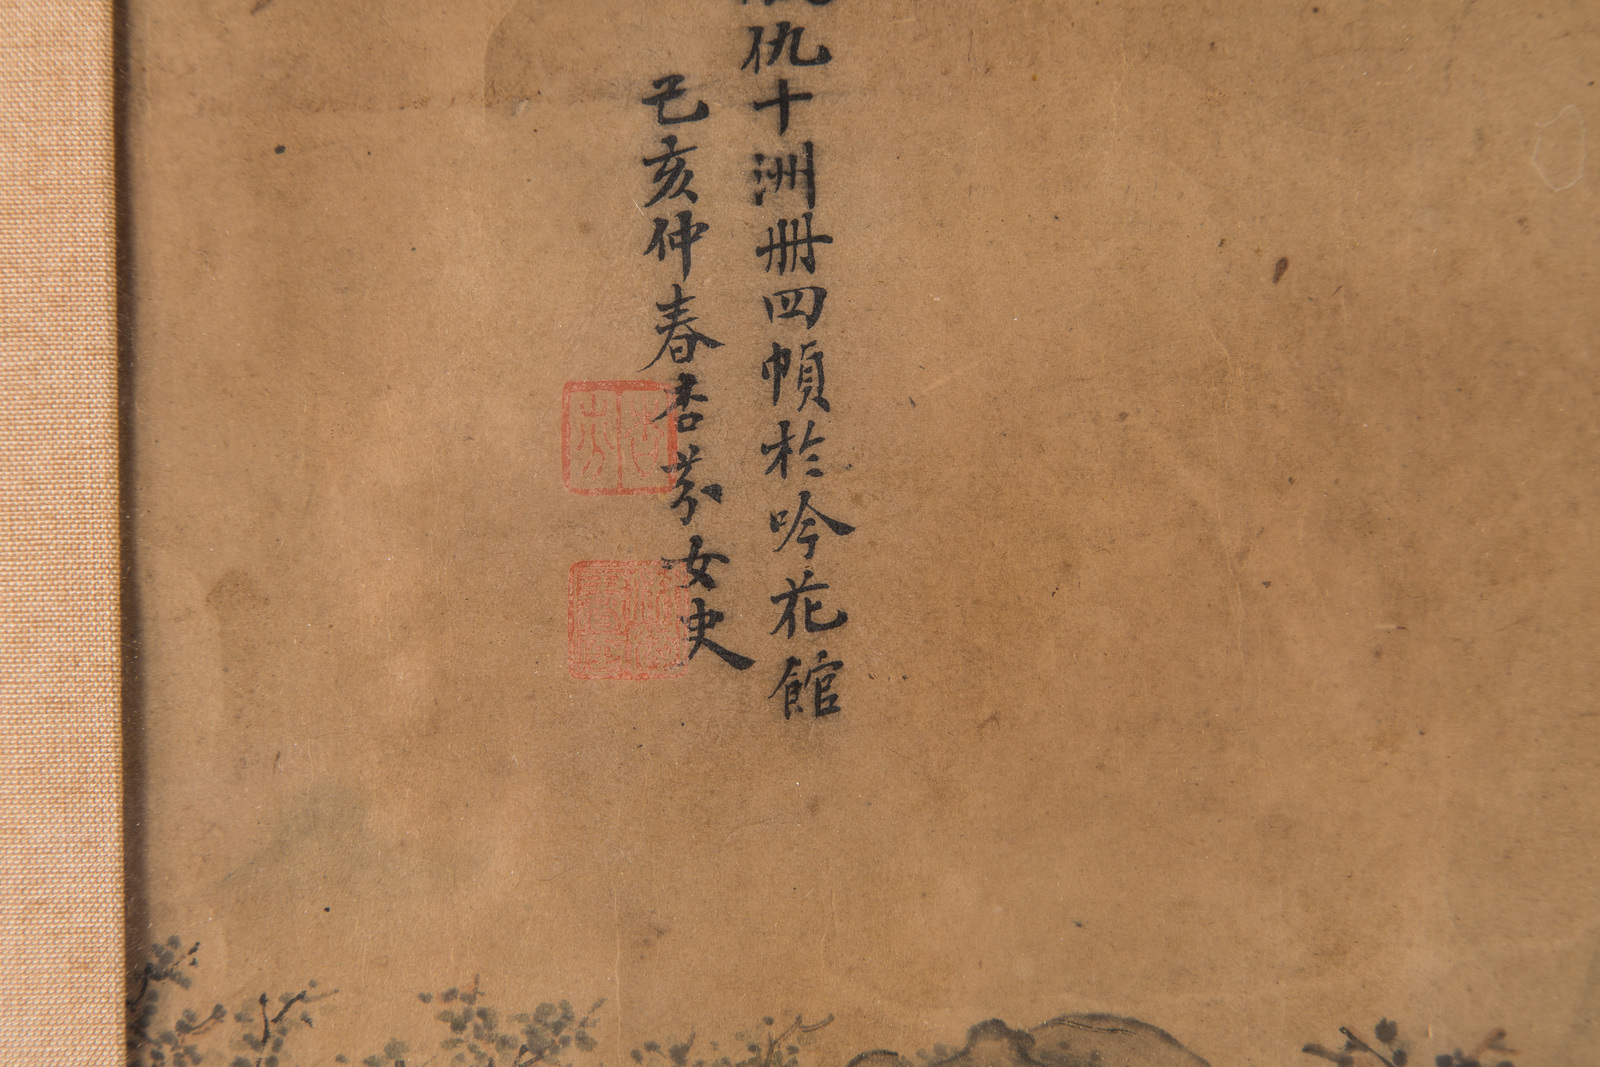 仇十洲冊四幀於吟花館
己亥仲春杏芬女史